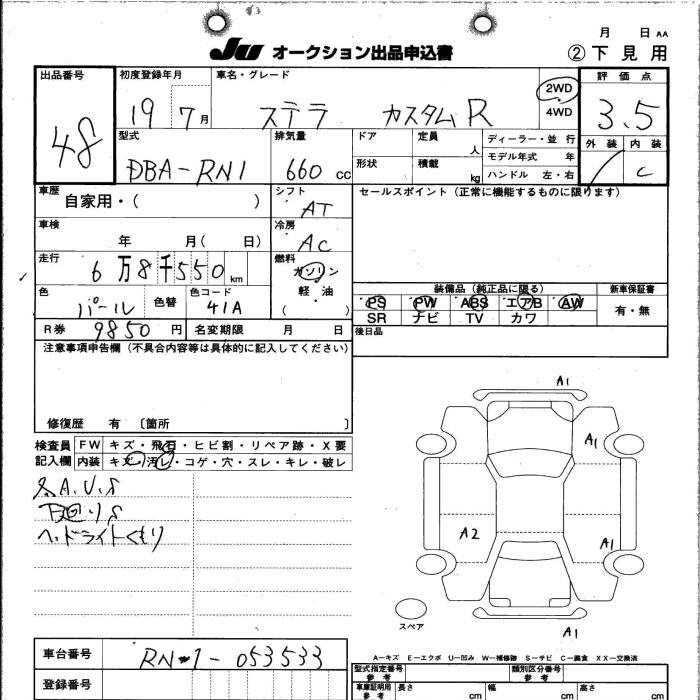 月 日 AA
JU オークション出品申込書 ② 下見用
出品番号 初度登録年月 車名・グレード 2WD 4WD 評価点
48 19 7月 ステラ カスタムR 3.5
型式 排気量 ドア 定員 人 ディーラー・並 行 外装 内装
DBA-RN1 660 cc 形状 積載 kg モデル年式 年 C
ハンドル 左・右
車歴 自家用・( ) シフト AT セールスポイント (正常に機能するものに限ります)
車検 年 月( 日) 冷房 AC
走行 6万8千550km 燃料 ガソリン 軽・油 ( )
色 パール 色替 色コード 41A 装備品 (純正品に限る) 新車保証書
PS PW ABS エアB AW 有・無
SR ナビ TV カワ
R券 9850円 名変期限 月 日 後日品
注意事項申告欄 (不具合内容等は具体的に記入してください)
修復歴 有 〔箇所 〕
検査員 FW キズ・飛石・ヒビ割・リペア跡・X要
記入欄 内装 キズ・汚レ・コゲ・穴・スレ・キレ・破レ
A.U.S
下回りS
ヘッドライトくもり
A1
A1
A2
A1
スペア
A1
A-キズ E-エクボ U-凹み W-補修跡 S-サビ C-腐食 XX-交換済
車台番号 RN1-053533
型式指定番号 参考 類別区分番号 参考
登録番号 車庫証明用 参考 長さ cm 幅 cm 高さ cm